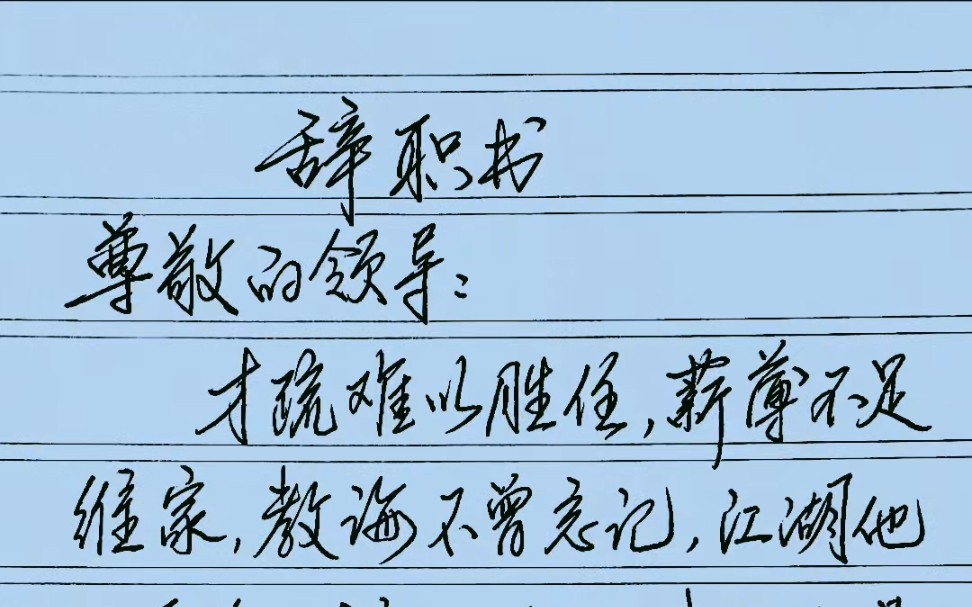 辞职书
尊敬的领导：
才疏难以胜任，薪薄不足
维家，教诲不曾忘记，江湖他